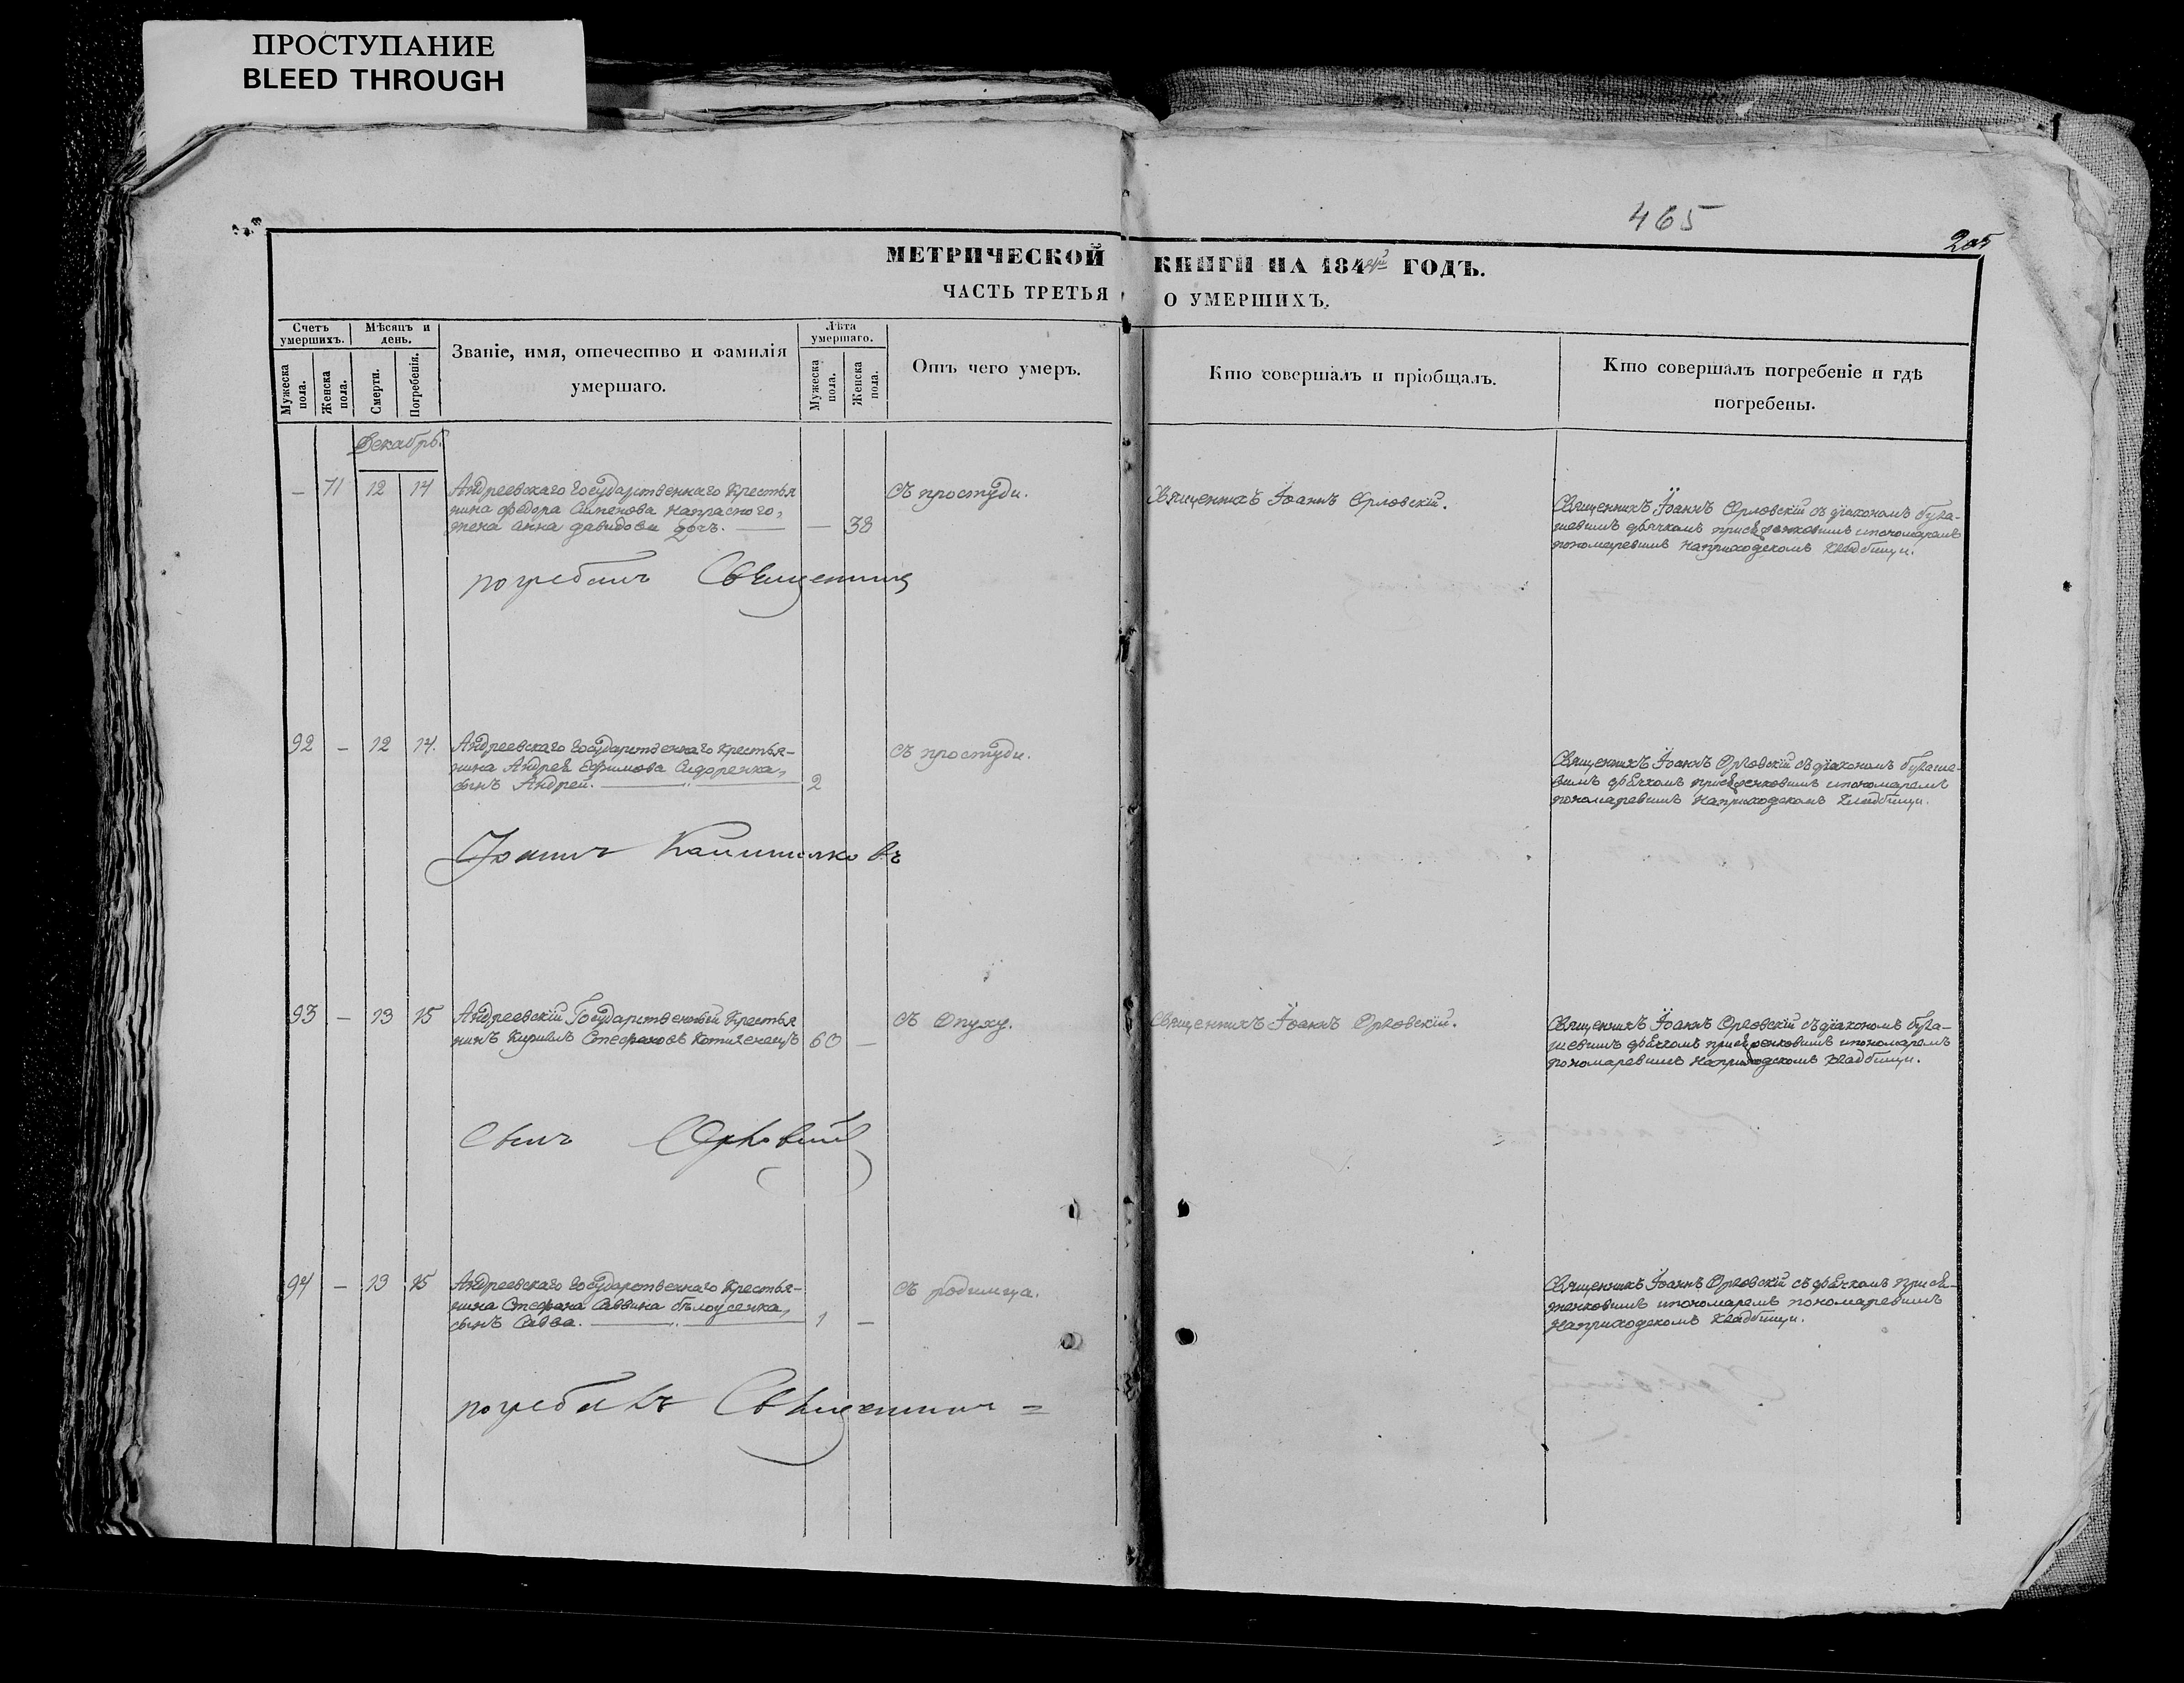 ПРОСТУПАНИЕ
BLEED THROUGH
465
205
МЕТРИЧЕСКОЙ КНИГИ НА 1844й ГОДЪ.
ЧАСТЬ ТРЕТЬЯ О УМЕРШИХЪ.
Счетъ умершихъ.
Мужеска пола.
Женска пола.
Мѣсяцъ и день.
Смерти.
Погребенія.
Званіе, имя, отечество и фамилія
умершаго.
Лѣта умершаго.
Мужеска пола.
Женска пола.
Отъ чего умеръ.
Кто совершалъ и пріобщалъ.
Кто совершалъ погребеніе и гдѣ
погребены.
Декабрь.
— 71 12 14 Андреевскаго Государственнаго Крестья
нина Федора Симёнова Напрасного,
жена Анна Давидова дочъ. — 38
Съ простуди.
Священникъ Іоаннъ Орловскій.
Священникъ Іоаннъ Орловскій съ діакономъ Буга-
шевимъ дьячкомъ присѣженковимъ ипономаремъ
пономаревимъ Наприходскомъ Кладбищи.
погребалъ Священникъ
92 — 12 14. Андреевскаго Государственнаго Крестья-
нина Андрея Ефимова Сидоренка,
сынъ Андрей. 2
Съ простуди.
Священникъ Іоаннъ Орловскій съ діакономъ Бугаше-
вимъ дьячкомъ присѣженковимъ ипономаремъ
пономаревимъ Наприходскомъ Кладбищи.
Іоаннъ
93 — 13 15 Андреевскій Государственный Крестья
нинъ Кирилъ Стефановъ 60 —
Съ Опуху.
Священникъ Іоаннъ Орловскій.
Священникъ Іоаннъ Орловскій съ діакономъ Буга-
шевимъ дьячкомъ присѣженковимъ ипономаремъ
пономаревимъ Наприходскомъ Кладбищи.
Орловскій
94 — 13 15 Андреевскаго Государственнаго Крестья-
нина Стефана Саввина Бѣлоусенка,
сынъ Савва. 1 —
Съ родимца.
Священникъ Іоаннъ Орловскій съ дьячкомъ присѣ-
женковимъ ипономаремъ пономаревимъ
Наприходскомъ Кладбищи.
погребалъ Священникъ =